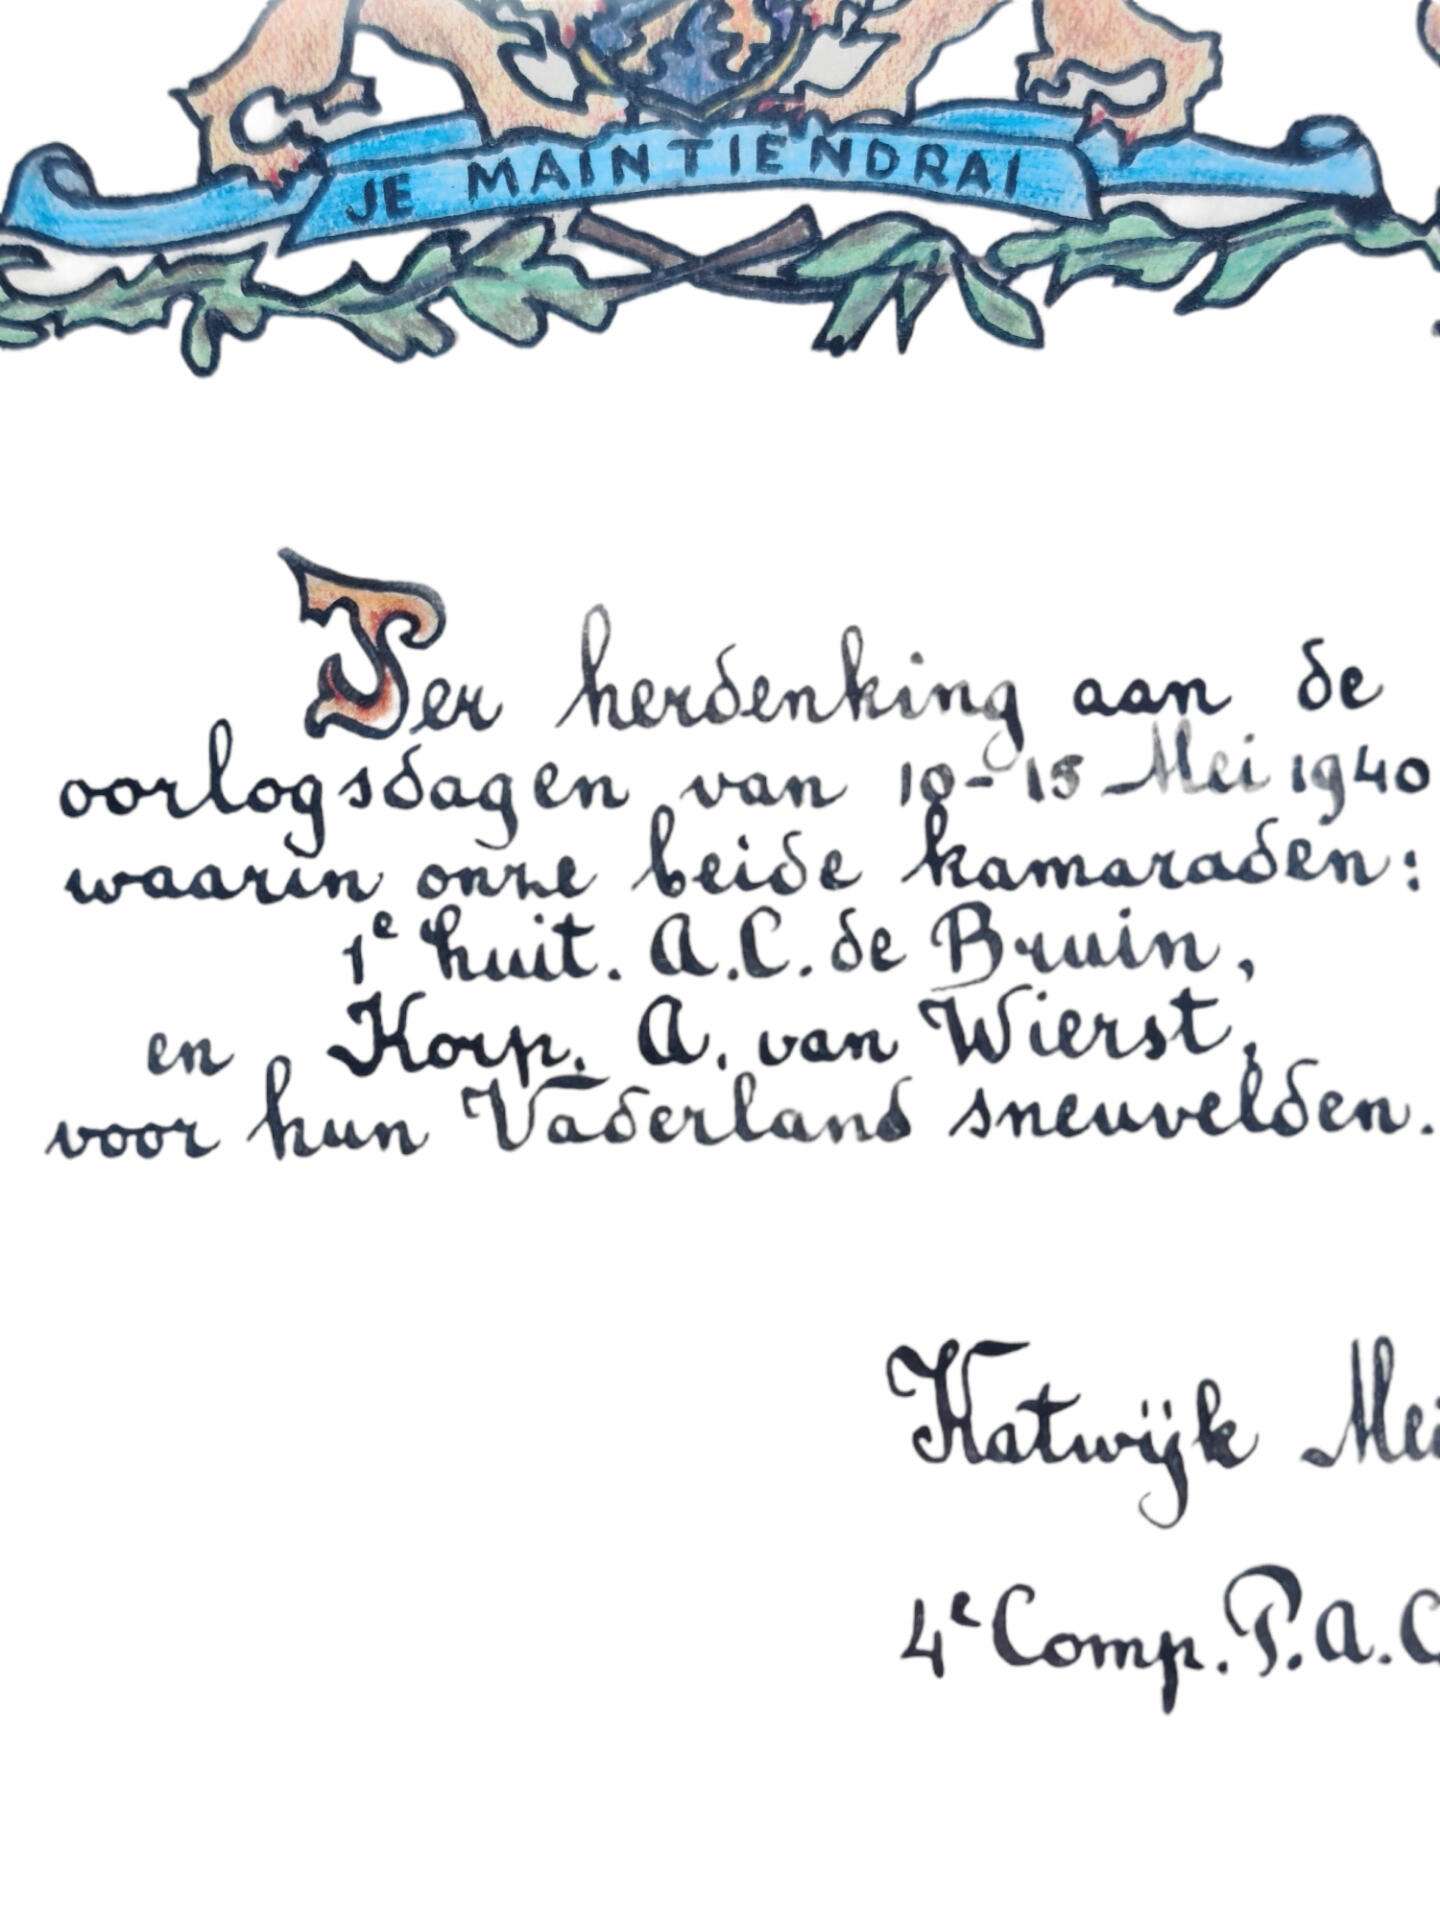 JE MAINTIENDRAI
Ter herdenking aan de
oorlogsdagen van 10-15 Mei 1940
waarin onze beide kamaraden:
1e huit. A.C. de Bruin,
en Korp. A. van Wierst,
voor hun Vaderland sneuvelden.
Katwijk Mei
4e Comp. P.A.C